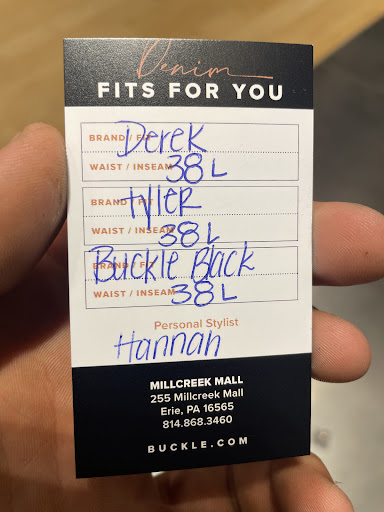 Denim
FITS FOR YOU
BRAND / FIT Derek
WAIST / INSEAM 38 L
BRAND / FIT Tyler
WAIST / INSEAM 38 L
BRAND / FIT Buckle Black
WAIST / INSEAM 38 L
Personal Stylist
Hannah
MILLCREEK MALL
255 Millcreek Mall
Erie, PA 16565
814.868.3460
BUCKLE.COM